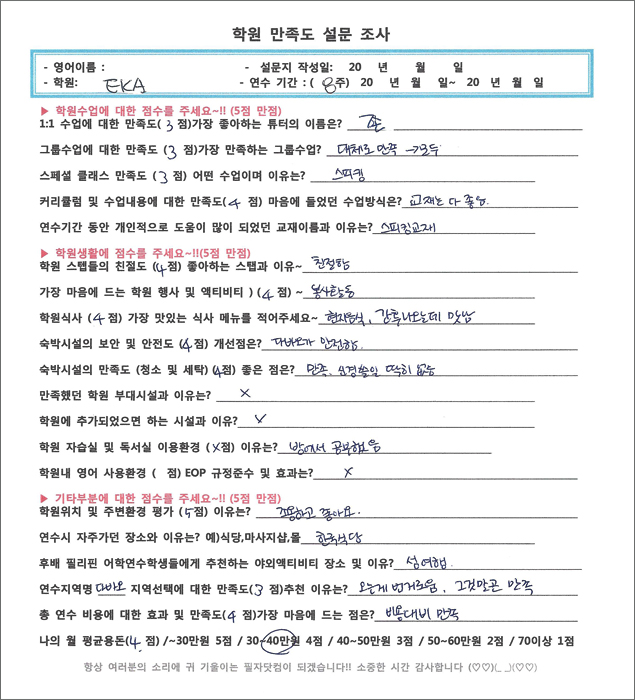 학원 만족도 설문 조사
- 영어이름 : - 설문지 작성일: 20 년 월 일
- 학원: EKA - 연수 기간 : ( 8주) 20 년 월 일~ 20 년 월 일
▶ 학원수업에 대한 점수를 주세요~!! (5점 만점)
1:1 수업에 대한 만족도( 3 점)가장 좋아하는 튜터의 이름은?
그룹수업에 대한 만족도 ( 3 점)가장 만족하는 그룹수업? 대체로 만족 → 모두
스페셜 클래스 만족도 ( 3 점) 어떤 수업이며 이유는? 스피킹
커리큘럼 및 수업내용에 대한 만족도( 4 점) 마음에 들었던 수업방식은? 교재는 다 좋음.
연수기간 동안 개인적으로 도움이 많이 되었던 교재이름과 이유는? 스피킹교재
▶ 학원생활에 점수를 주세요~!!(5점 만점)
학원 스텝들의 친절도 ( 4 점) 좋아하는 스탭과 이유~ 친절함
가장 마음에 드는 학원 행사 및 액티비티 ) ( 4 점) ~ 봉사활동
학원식사 ( 4 점) 가장 맛있는 식사 메뉴를 적어주세요~ 현지음식, 간혹나오는데 맛남
숙박시설의 보안 및 안전도 ( 4 점) 개선점은? 다바오가 안전함.
숙박시설의 만족도 (청소 및 세탁) ( 4 점) 좋은 점은? 만족. 신경쓸일 딱히 없음
만족했던 학원 부대시설과 이유는? X
학원에 추가되었으면 하는 시설과 이유? X
학원 자습실 및 독서실 이용환경 ( X 점) 이유는? 방에서 공부했음
학원내 영어 사용환경 ( 점) EOP 규정준수 및 효과는? X
▶ 기타부분에 대한 점수를 주세요~!! (5점 만점)
학원위치 및 주변환경 평가 ( 5 점) 이유는? 조용하고 좋아요.
연수시 자주가던 장소와 이유는? 예)식당,마사지샵,몰 한국식당
후배 필리핀 어학연수학생들에게 추천하는 야외액티비티 장소 및 이유? 섬여행.
연수지역명 다바오 지역선택에 대한 만족도( 3 점)추천 이유는? 오는게 번거로움, 그것말곤 만족
총 연수 비용에 대한 효과 및 만족도( 4 점)가장 마음에 드는 점은? 비용대비 만족
나의 월 평균용돈( 4 점) /~30만원 5점 / 30~40만원 4점 / 40~50만원 3점 / 50~60만원 2점 / 70이상 1점
항상 여러분의 소리에 귀 기울이는 필자닷컴이 되겠습니다!! 소중한 시간 감사합니다 (♡♡)(_ _)(♡♡)